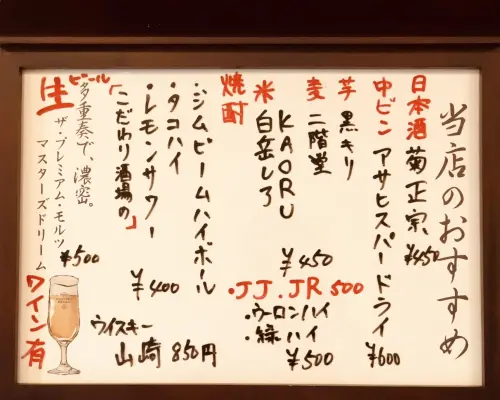 当店のおすすめ
日本酒 菊正宗 ¥450
中ビン アサヒスーパードライ ¥600
芋 黒キリ
麦 二階堂
米 KAORU
白岳しろ
¥450
焼酎
・JJ.JR 500
・ウーロンハイ
・緑ハイ
¥500
・ジムビームハイボール
・タコハイ
・レモンサワー
「こだわり酒場の」
¥400
ウイスキー
山崎 850円
生ビール
多重奏で、濃密。
ザ・プレミアム・モルツ
マスターズドリーム
¥500
ワイン有